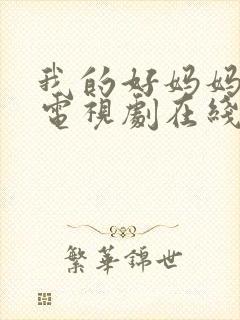 我的好妈妈
電視劇在綫
繁華錦世